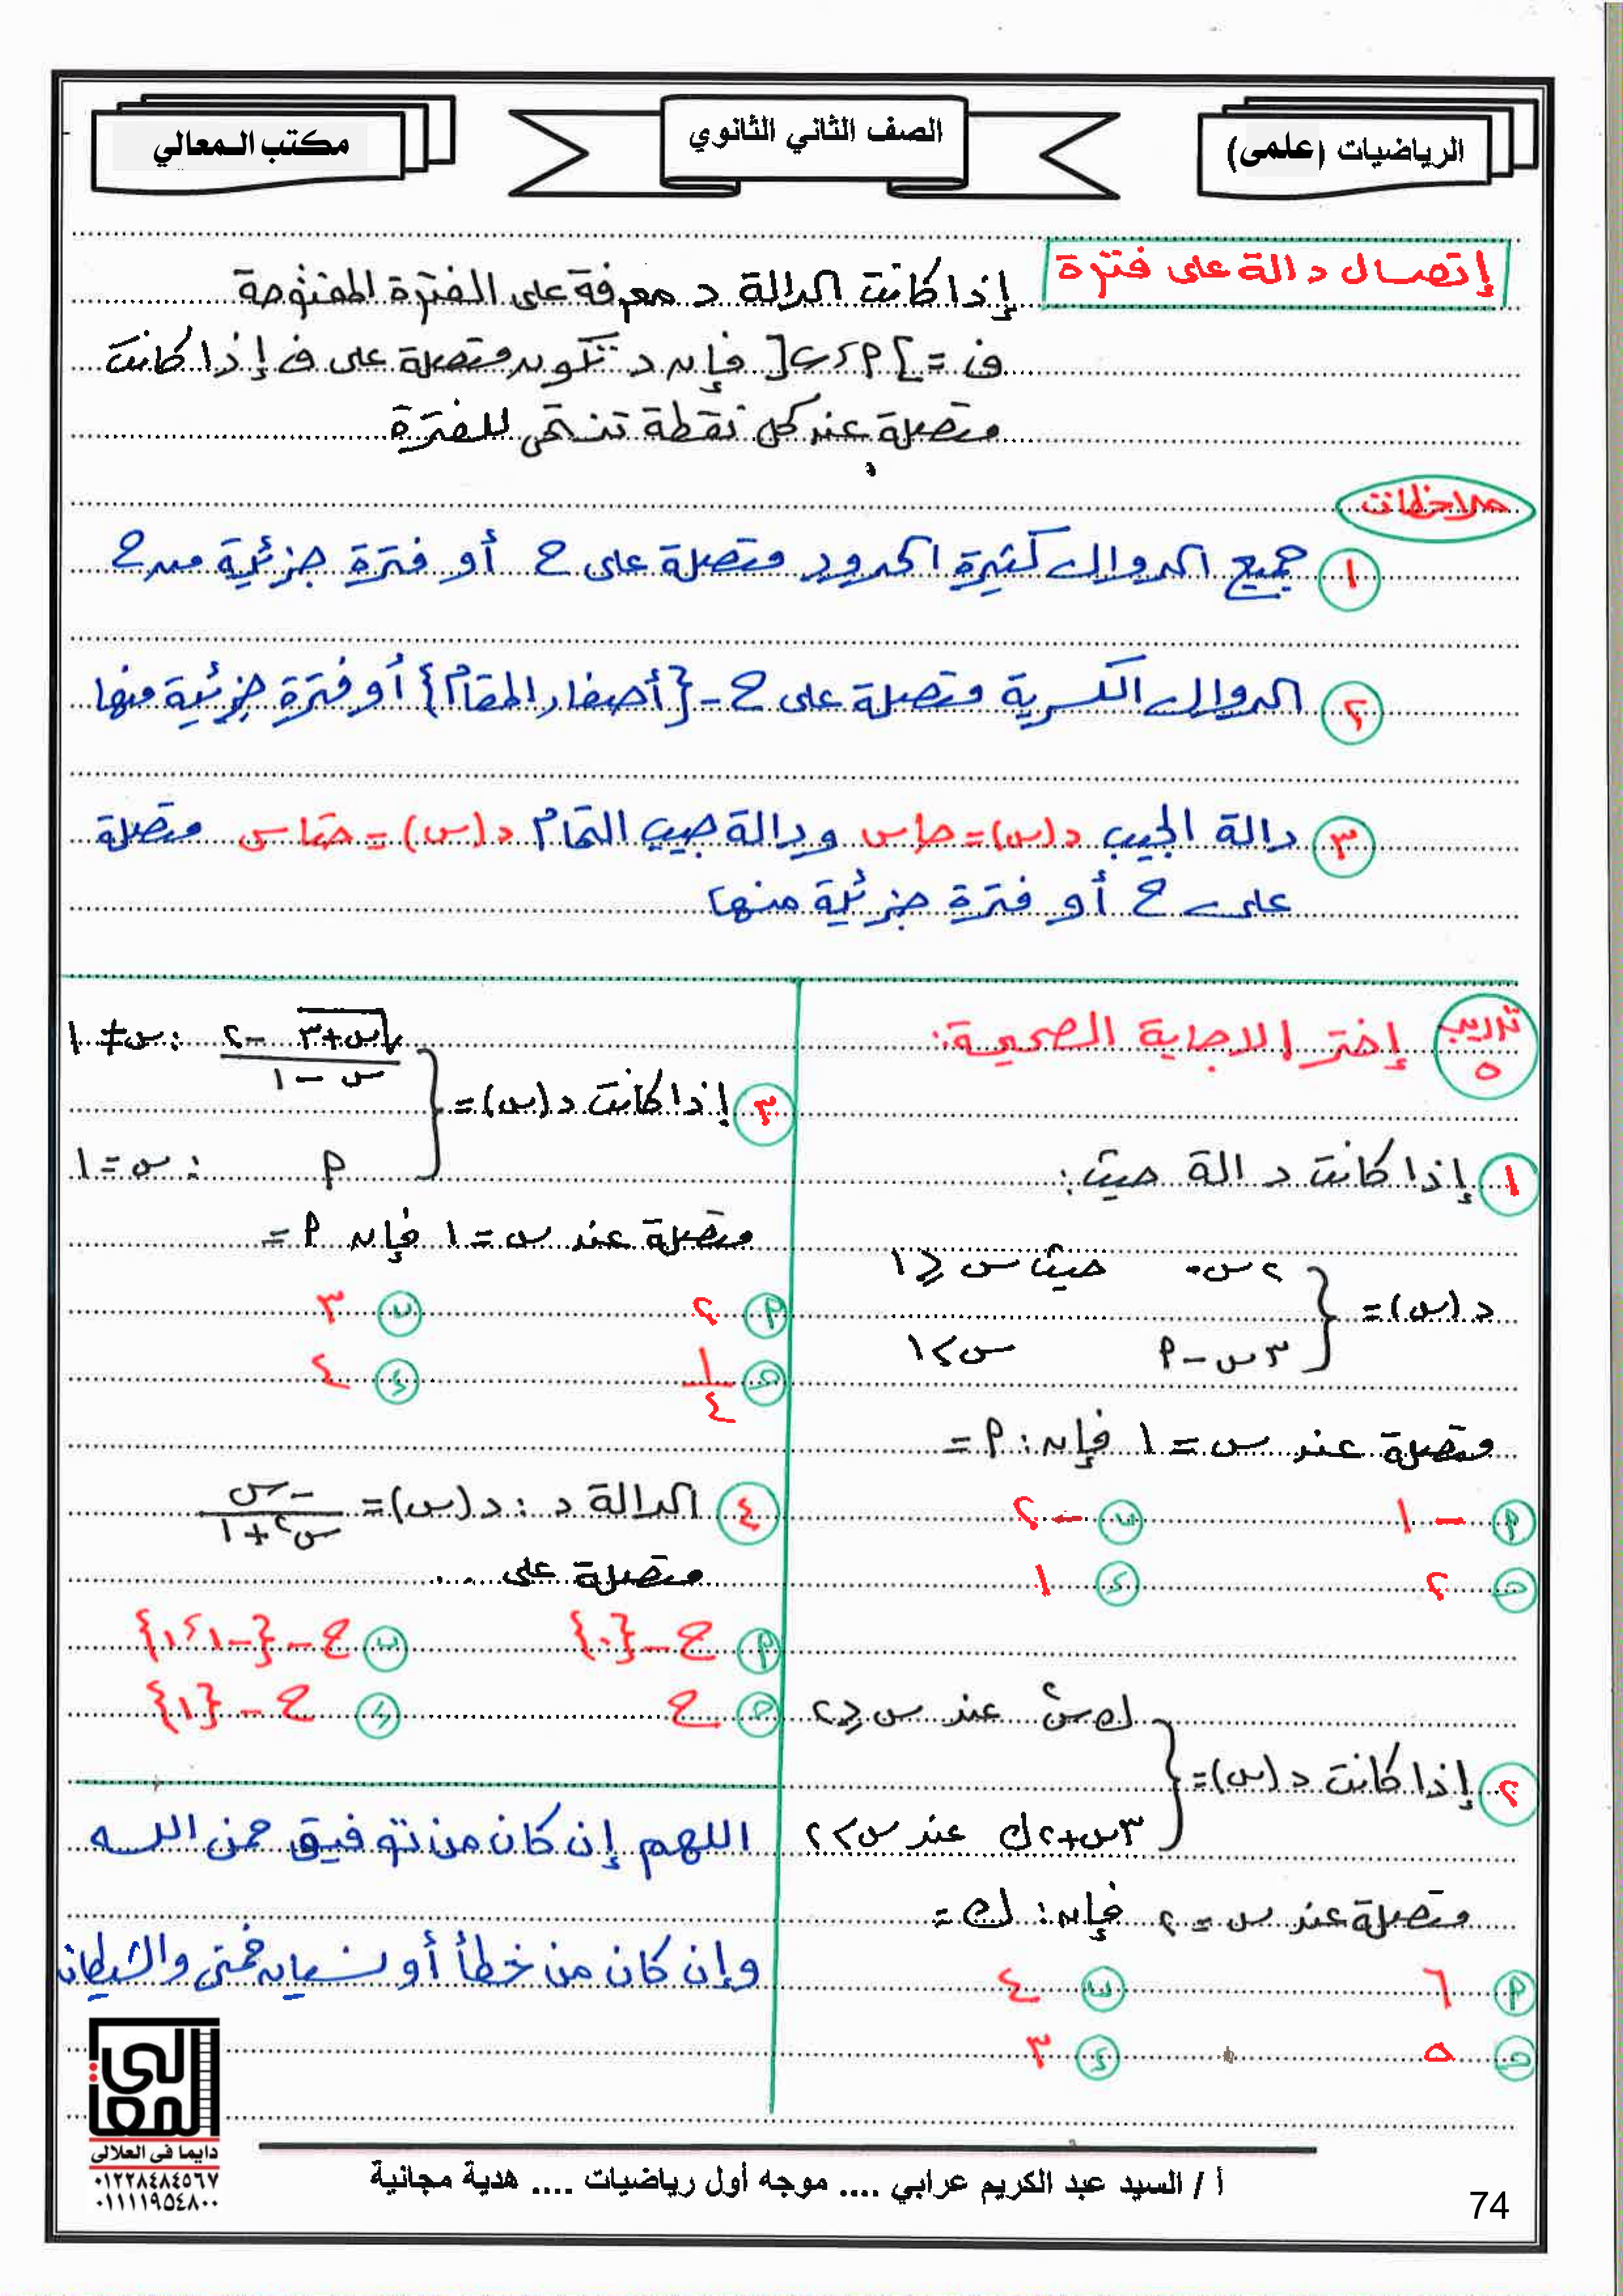 الرياضيات (علمى)
الصف الثاني الثانوي
مكتب المعالي
إتصال دالة على فترة
إذا كانت الدالة د معرفة على الفترة المفتوحة
ف = ]أ ، ب[ فإن د تكون متصلة على ف إذا كانت
متصلة عند كل نقطة تنتمى للفترة
ملاحظات
١ جميع الدوال كثيرة الحدود متصلة على ح أو فترة جزئية من ح
٢ الدوال الكسرية متصلة على ح - {أصفار المقام} أو فترة جزئية منها
٣ دالة الجيب د(س) = جاس ودالة جيب التمام د(س) = جتاس متصلة
على ح أو فترة جزئية منها
تدريب ٥ إختر الاجابة الصحيحة:
١ إذا كانت د الة حيث:
د(س) = { ٢س حيث س ≤ ١
٣س - أ س > ١
متصلة عند س = ١ فإن: أ =
أ - ١ ب - ٢
ج ٢ د ١
٢ إذا كانت د(س) = { ك س٢ عند س ≤ ٢
٣س + ٢ك عند س > ٢
متصلة عند س = ٢ فإن: ك =
أ ٦ ب ٤
ج ٥ د ٣
٣ إذا كانت د(س) = { (√(س+٣) - ٢) / (س - ١) : س ≠ ١
أ : س = ١
متصلة عند س = ١ فإن أ =
أ ٢ ب ٣
ج ١/٤ د ٤
٤ الدالة د : د(س) = -س / (س٢ + ١)
متصلة على ...
أ ح - {٠} ب ح - {-١ ، ١}
ج ح د ح - {١}
اللهم إن كان من توفيق فمن الله
وإن كان من خطأ أو نسيان فمنى والشيطان
المعالى
دايما فى العلالى
٠١٢٢٨٤٨٤٥٦٧
٠١١١١٩٥٤٨٠٠
أ / السيد عبد الكريم عرابي .... موجه أول رياضيات .... هدية مجانية
74